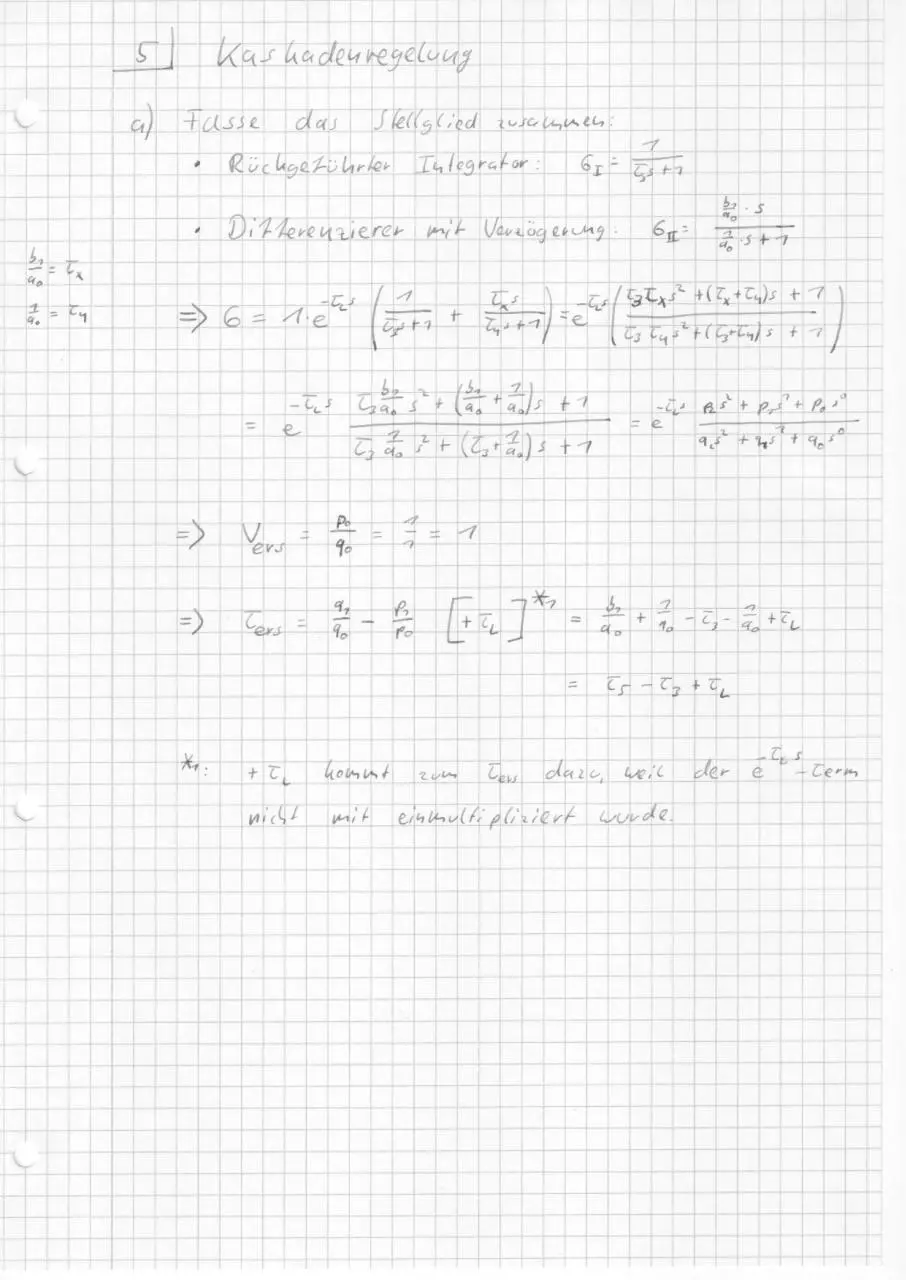 5 Kaskadenregelung
a) Fasse das Stellglied zusammen:
• Rückgeführter Integrator: G_I = 1/(τ_3 s + 1)
• Differenzierer mit Verzögerung: G_II = (b_1/a_0 · s)/(1/a_0 · s + 1)
b_1/a_0 = τ_x
1/a_0 = τ_4
⇒ G = 1·e^(-τ_L s) (1/(τ_3 s + 1) + τ_x s/(τ_4 s + 1)) = e^(-τ_L s) ((τ_3 τ_x s² + (τ_x + τ_4)s + 1)/(τ_3 τ_4 s² + (τ_3 + τ_4)s + 1))
= e^(-τ_L s) (τ_3 b_1/a_0 s² + (b_1/a_0 + 1/a_0)s + 1)/(τ_3 1/a_0 s² + (τ_3 + 1/a_0)s + 1) = e^(-τ_L s) (p_2 s² + p_1 s¹ + p_0 s⁰)/(q_2 s² + q_1 s¹ + q_0 s⁰)
⇒ V_ers = p_0/q_0 = 1/1 = 1
⇒ τ_ers = q_1/q_0 - p_1/p_0 [+ τ_L]^*1 = b_1/a_0 + 1/a_0 - τ_3 - 1/a_0 + τ_L
= τ_5 - τ_3 + τ_L
*1: + τ_L kommt zum τ_ers dazu, weil der e^(-τ_L s)-Term
nicht mit einmultipliziert wurde.